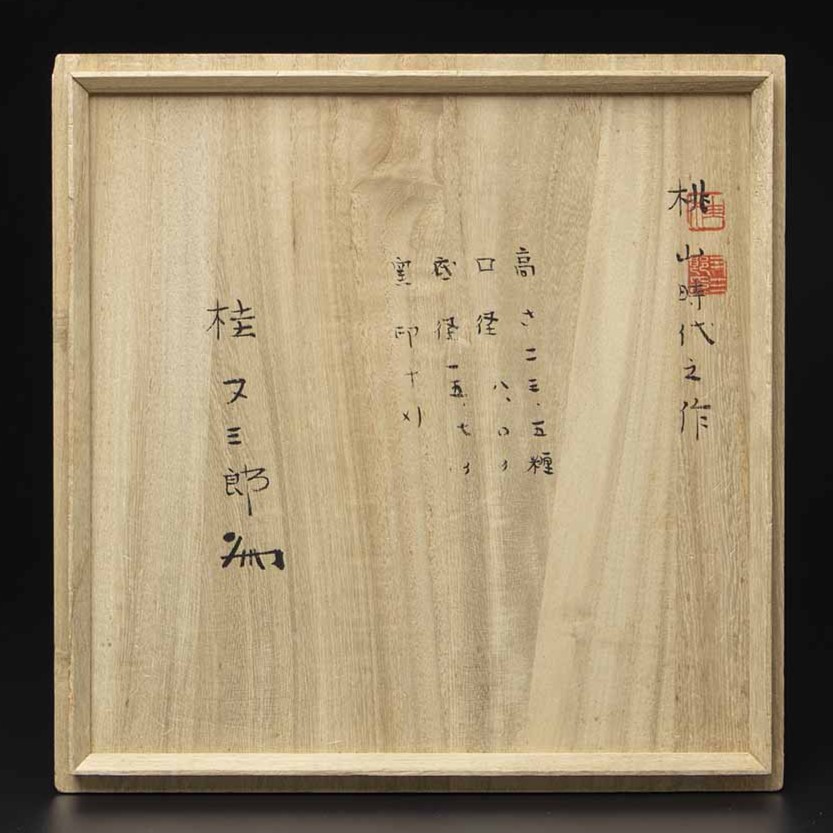 桃山時代之作
高さ二三.五糎
口径 八.〇〃
底径一五.七〃
窯印十メリ
桂又三郎